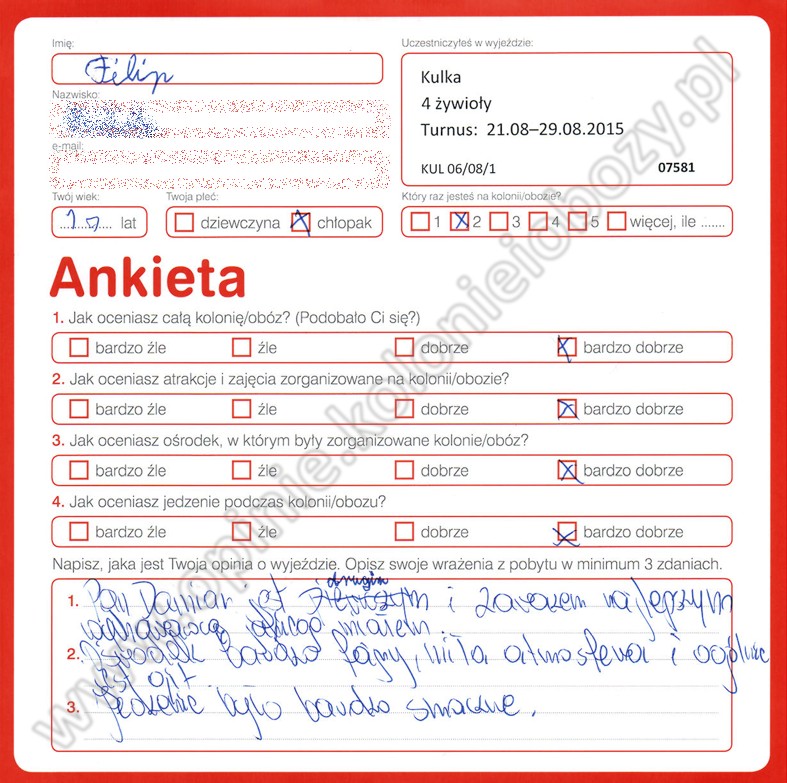 Imię:
Filip
Nazwisko:
e-mail:
Uczestniczyłeś w wyjeździe:
Kulka
4 żywioły
Turnus: 21.08–29.08.2015
KUL 06/08/1 07581
Twój wiek:
lat
Twoja płeć:
dziewczyna chłopak
Który raz jesteś na kolonii/obozie?
1 2 3 4 5 więcej, ile .......
Ankieta
1. Jak oceniasz całą kolonię/obóz? (Podobało Ci się?)
bardzo źle źle dobrze bardzo dobrze
2. Jak oceniasz atrakcje i zajęcia zorganizowane na kolonii/obozie?
bardzo źle źle dobrze bardzo dobrze
3. Jak oceniasz ośrodek, w którym były zorganizowane kolonie/obóz?
bardzo źle źle dobrze bardzo dobrze
4. Jak oceniasz jedzenie podczas kolonii/obozu?
bardzo źle źle dobrze bardzo dobrze
Napisz, jaka jest Twoja opinia o wyjeździe. Opisz swoje wrażenia z pobytu w minimum 3 zdaniach.
drugim
1. Pan Damian jest i zarazem najlepszym
wychowawcą miałem.
2. Ośrodek bardzo fajny, miła atmosfera i ogólnie
jest
3. Jedzenie było bardzo smaczne.
www.opinie.kolonieiobozy.pl